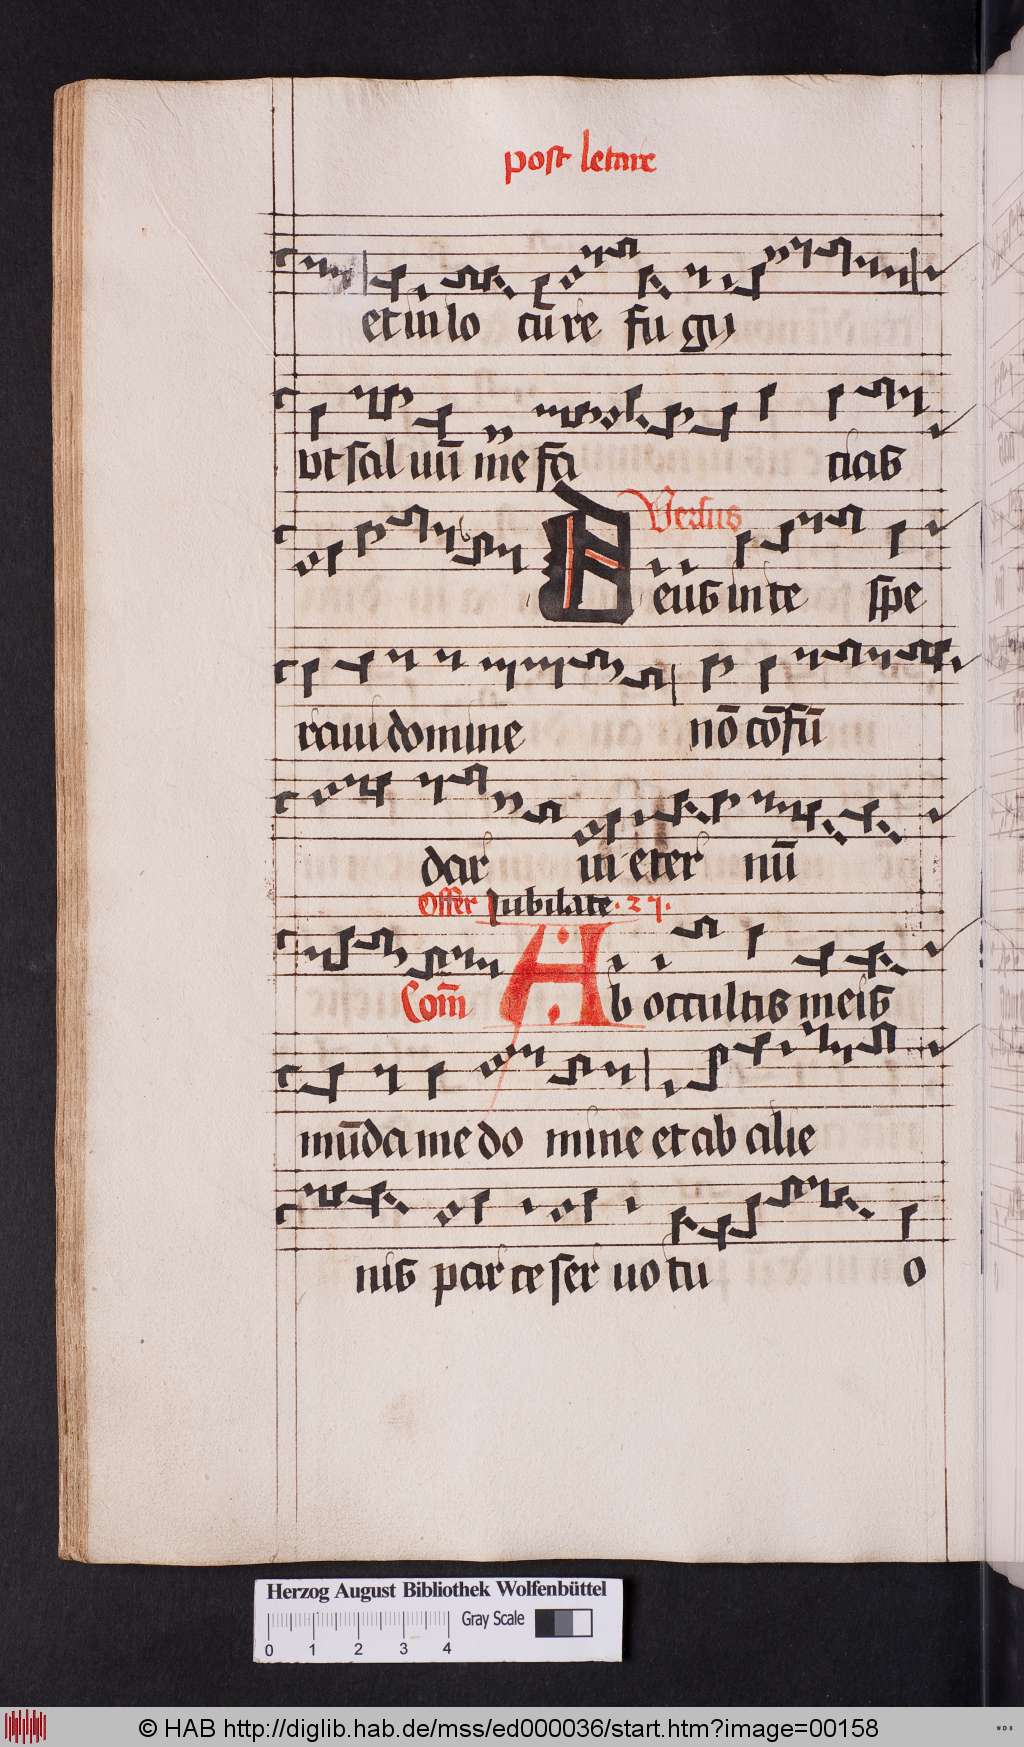 post letare
et in lo cū re fu gy
ut sal uū me fa cias
Versus
Deus in te spe
raui domine nō cōfū
dar in eter nū
Offer Jubilate · 27 ·
Com̄ Ab occultis meis
mūda me do mine et ab alie
nis par ce ser uo tu o
Herzog August Bibliothek Wolfenbüttel
0 1 2 3 4 Gray Scale
© HAB http://diglib.hab.de/mss/ed000036/start.htm?image=00158